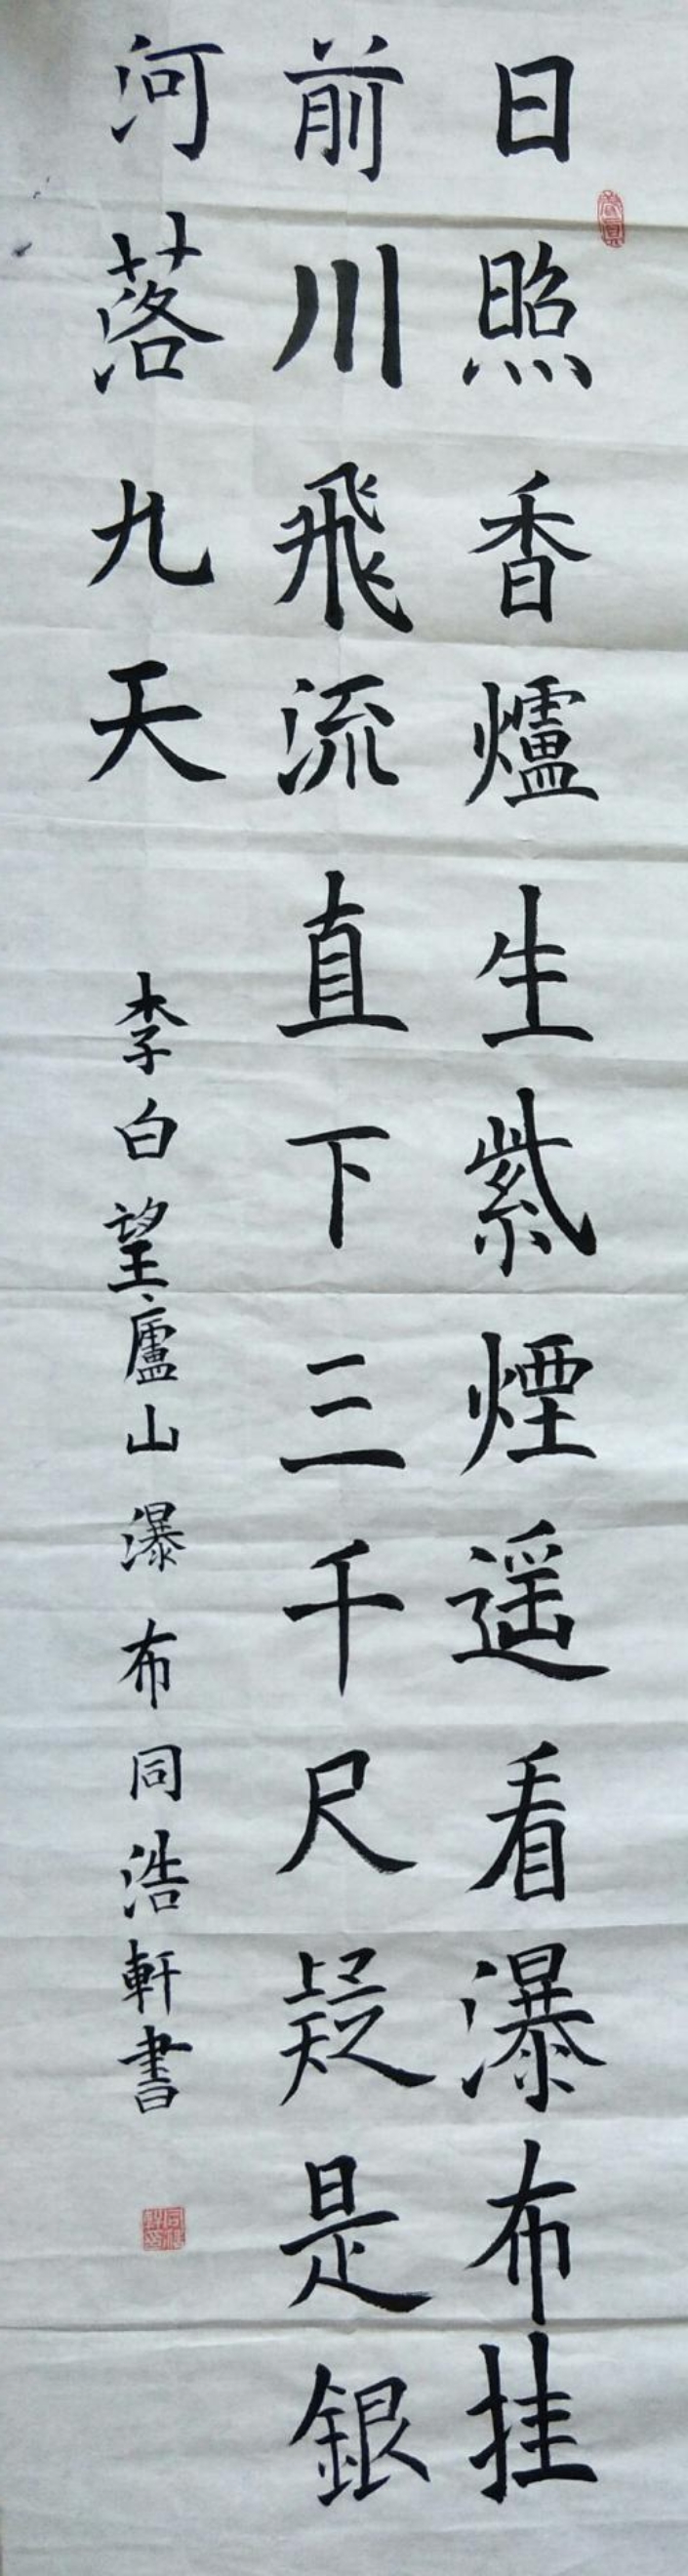 日照香爐生紫煙遥看瀑布挂
前川飛流直下三千尺疑是銀
河落九天
李白望廬山瀑布同浩軒書